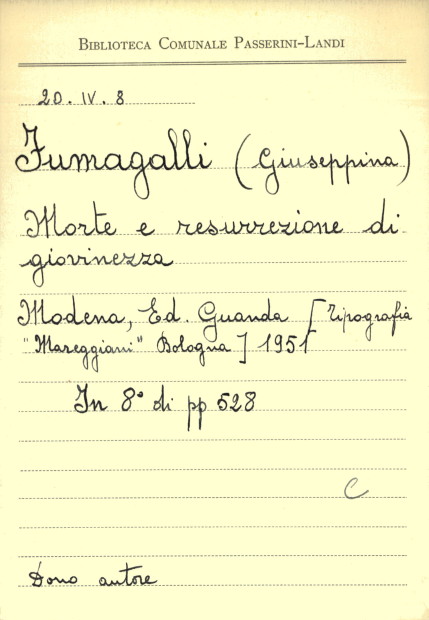 BIBLIOTECA COMUNALE PASSERINI-LANDI
20. IV. 8
Fumagalli (Giuseppina)
Morte e resurrezione di
giovinezza
Modena, Ed. Guanda [Tipografia
"Mareggiani" Bologna] 1951
In 8° di pp 528
C
Dono autore